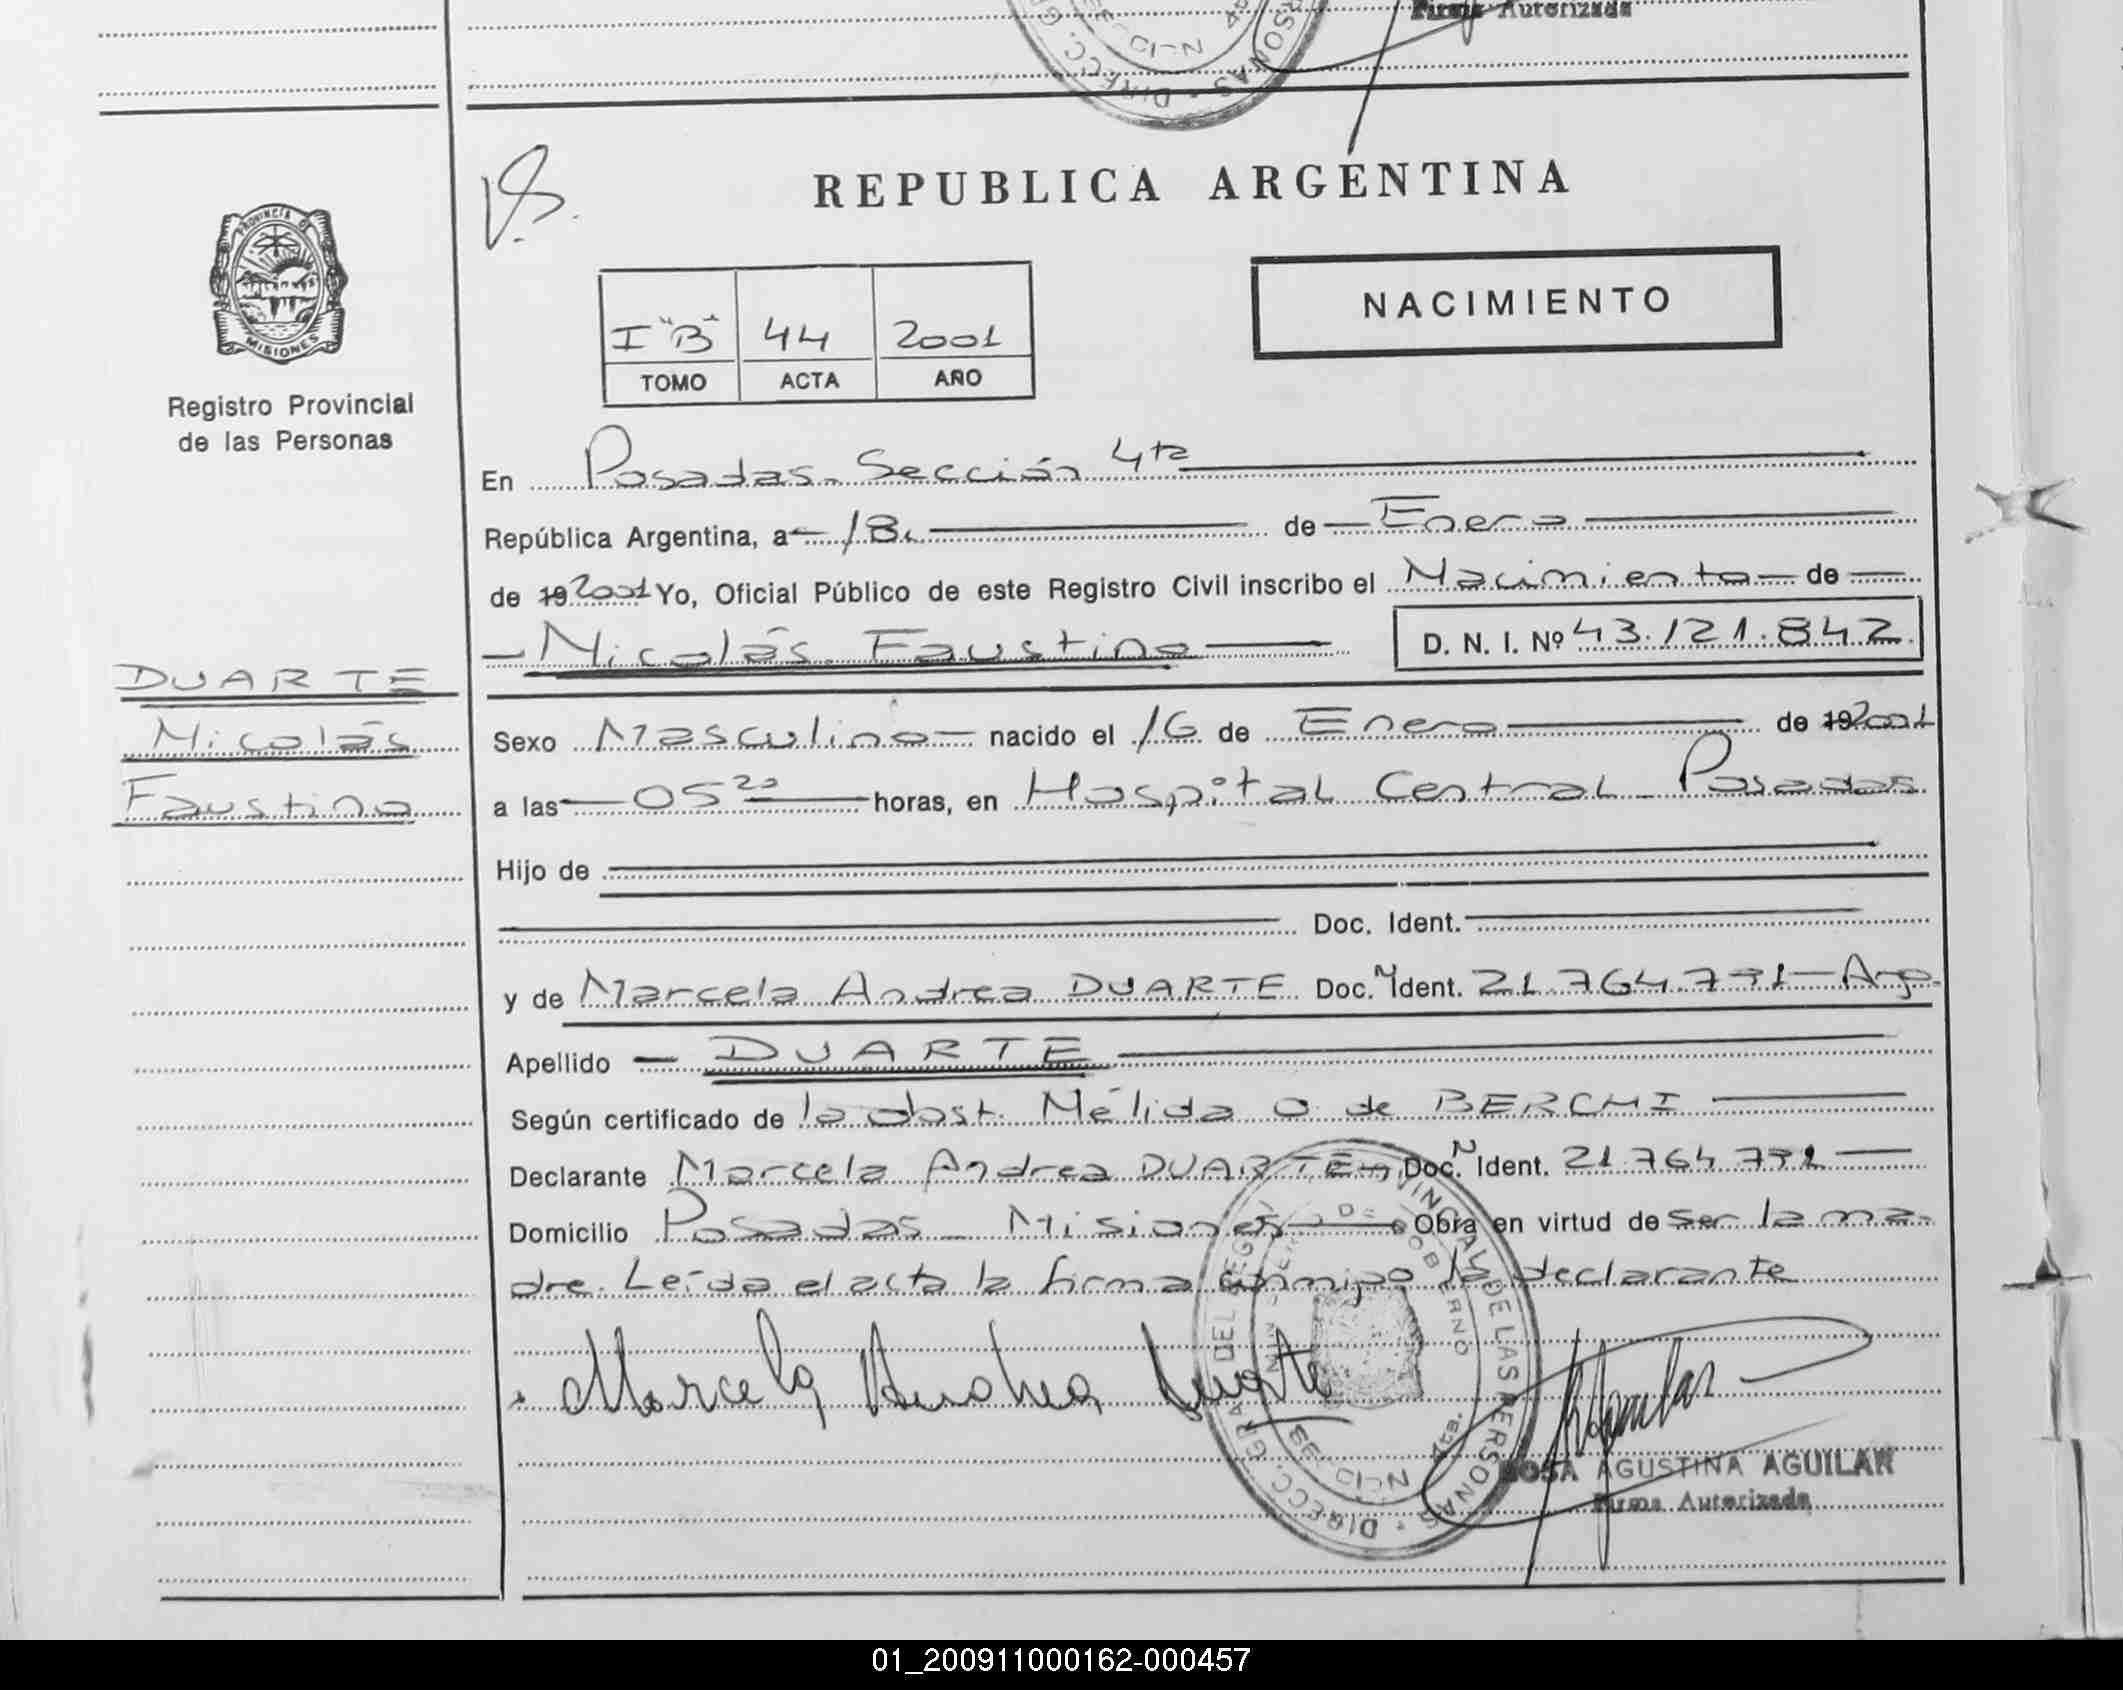 Firma Autorizada
DIRECC. GR
SONAS
REPUBLICA ARGENTINA
PROVINCIA D
MISIONES
Registro Provincial
de las Personas
NACIMIENTO
I "B" 44 2001
TOMO ACTA AÑO
En Posadas - Sección 4ta
República Argentina, a 18 de Enero
de 19 2001 Yo, Oficial Público de este Registro Civil inscribo el Nacimiento de
Nicolás Faustino D. N. I. Nº 43.121.842
DUARTE
Nicolás
Faustino
Sexo Masculino nacido el 16 de Enero de 19 2001
a las 05 20 horas, en Hospital Central - Posadas
Hijo de
Doc. Ident.
y de Marcela Andrea DUARTE Doc. N Ident. 21.764.791 - Arg.
Apellido DUARTE
Según certificado de la obst. Nélida O. de BERCHI
Declarante Marcela Andrea DUARTE Doc. N Ident. 21.764.791
Domicilio Posadas - Misiones Obra en virtud de ser la ma-
dre. Leída el acta la firma conmigo la declarante
Marcela Andrea Duarte
DIRECC. GRAL DEL REG. PROVINCIAL DE LAS PERSONAS
ROSA AGUSTINA AGUILAR
Firma Autorizada
01_200911000162-000457